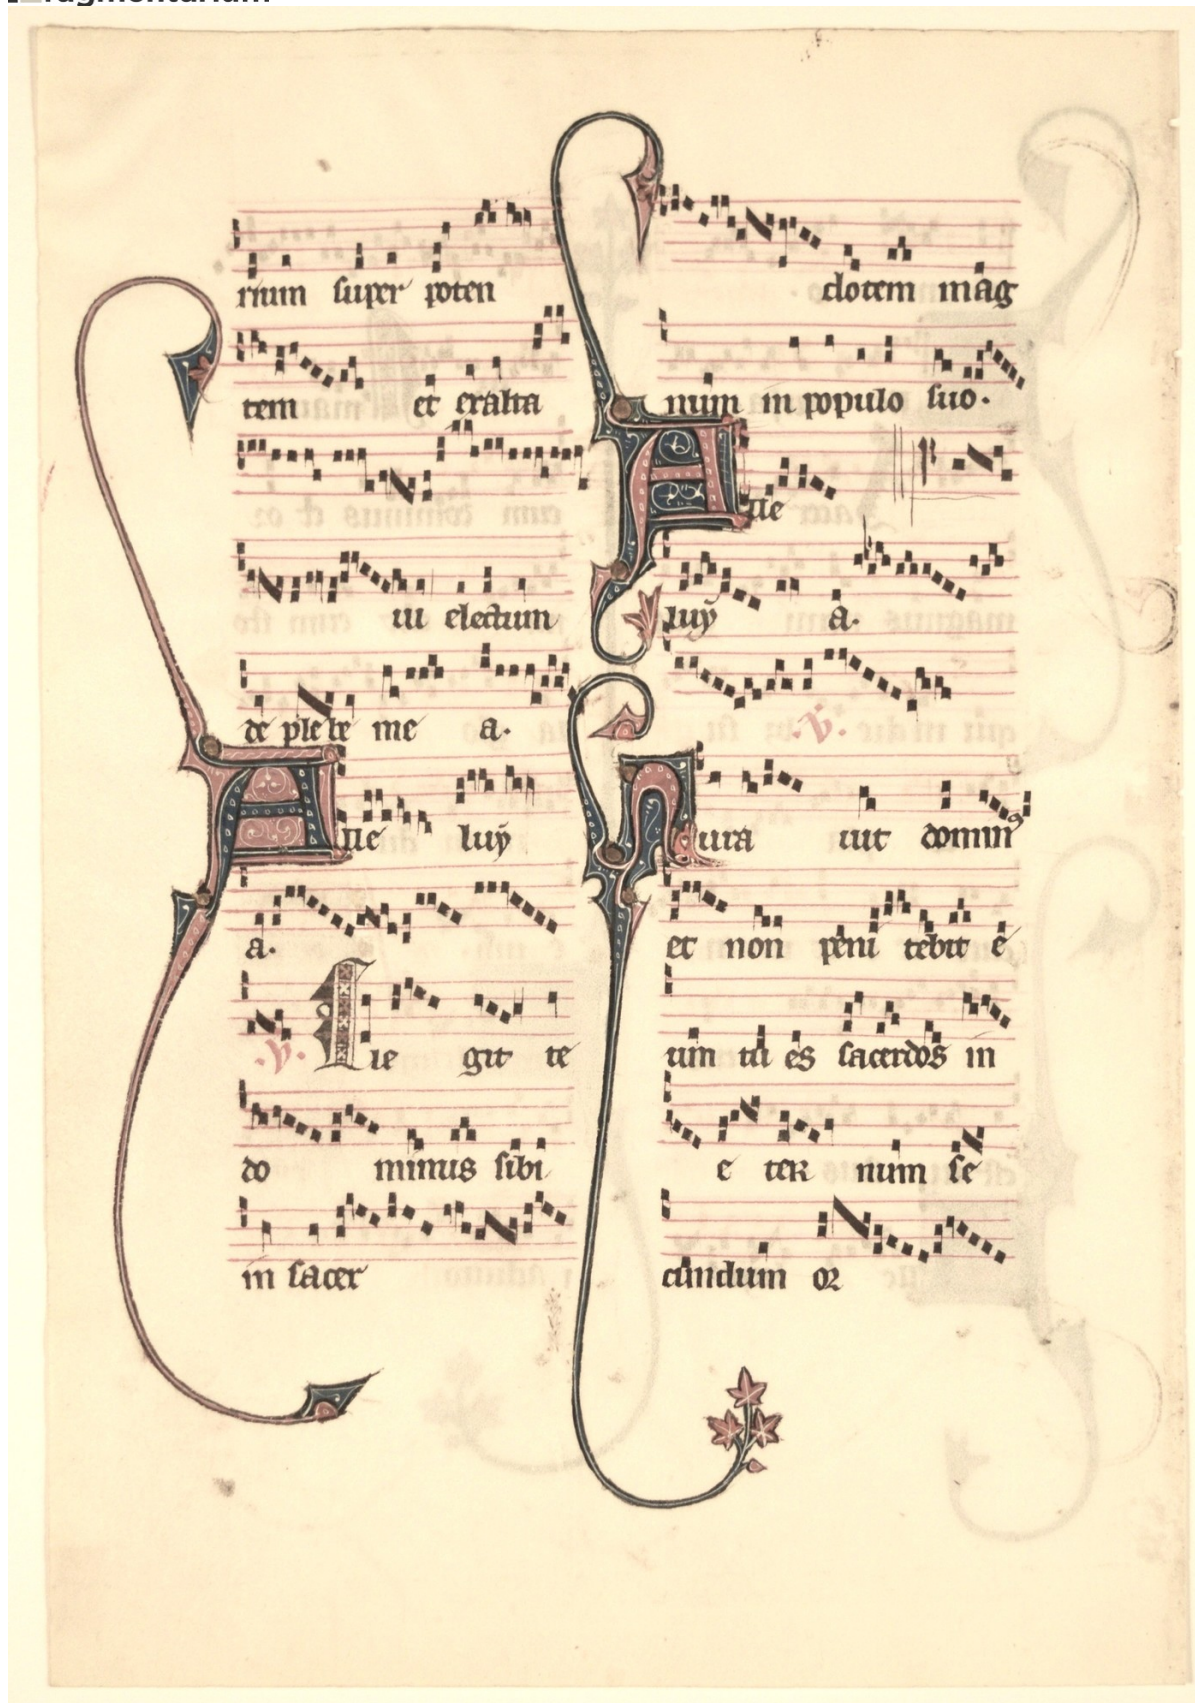 rium super poten
tem et exalta
ui electum
de plebe me a.
Alle luy
a.
.V. Ele git te
do minus sibi
in sacer
dotem mag
num in populo suo.
Alle
luy a.
.V.
Iura uit domin⁹
et non peni tebit e
um tu es sacerdos in
e ter num se
cundum or